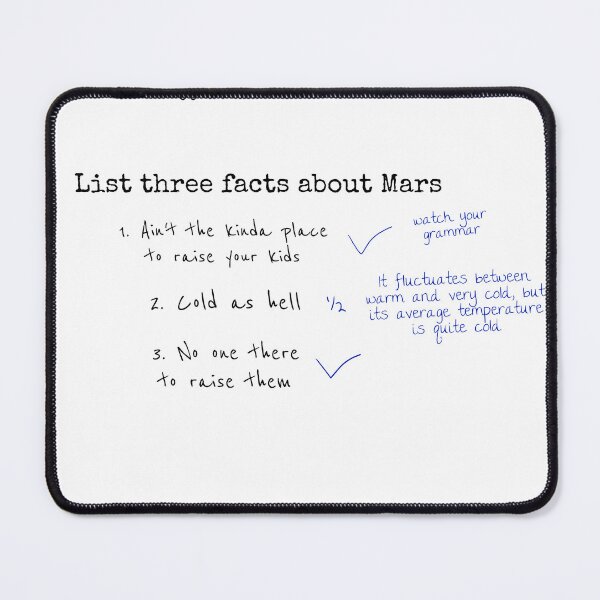 List three facts about Mars
1. Ain't the kinda place
to raise your kids
watch your
grammar
2. Cold as hell
1/2
It fluctuates between
warm and very cold, but
its average temperature
is quite cold
3. No one there
to raise them